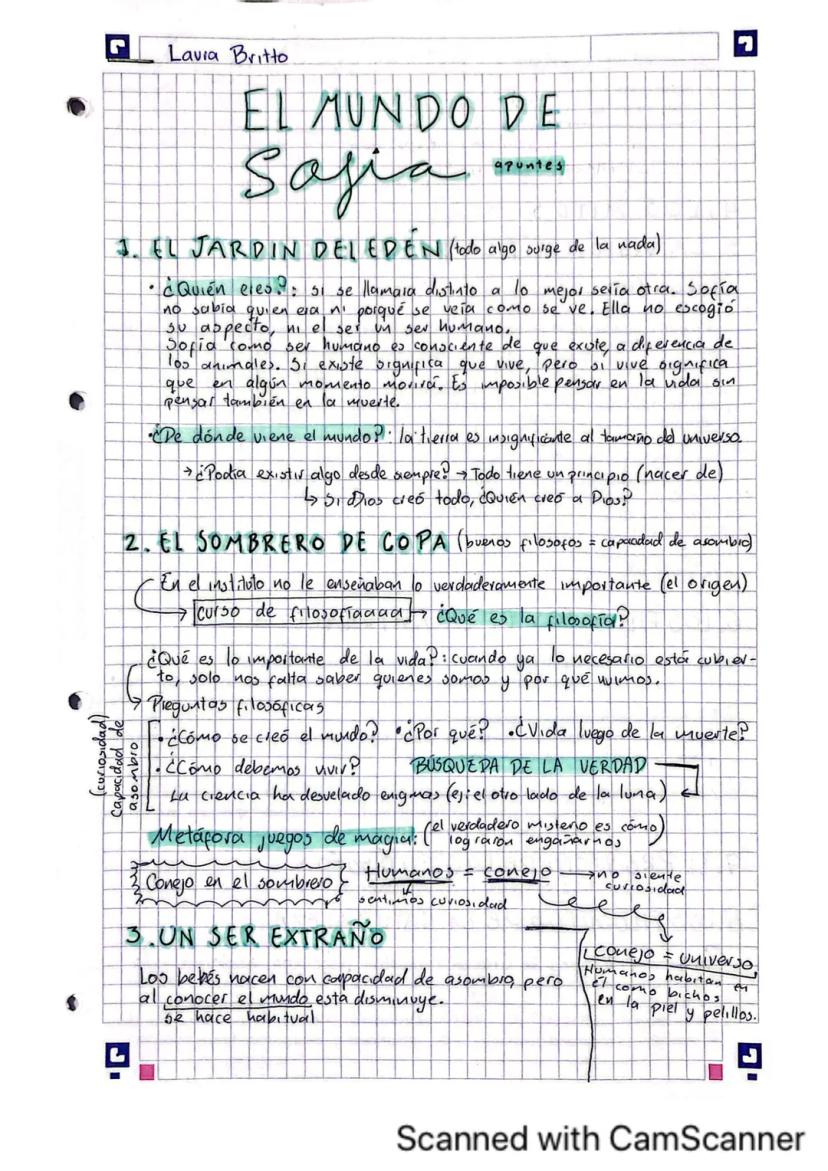 Laura Britto
EL MUNDO DE
Sofia apuntes
1. EL JARDIN DEL EDÉN (todo algo surge de la nada)
• ¿Quién eres?: si se llamara distinto a lo mejor sería otra. Sofía
no sabía quien era ni porqué se veía como se ve. Ella no escogió
su aspecto, ni el ser un ser humano.
Sofía como ser humano es consciente de que existe, a diferencia de
los animales. Si existe significa que vive, pero si vive significa
que en algún momento morirá. Es imposible pensar en la vida sin
pensar también en la muerte.
• ¿De dónde viene el mundo?: la tierra es insignificante al tamaño del universo.
→ ¿Podía existir algo desde siempre? → Todo tiene un principio (nacer de)
↳ Si Dios creó todo, ¿Quién creó a Dios?
2. EL SOMBRERO DE COPA (buenos filosofos = capacidad de asombro)
En el instituto no le enseñaban lo verdaderamente importante (el origen)
→ curso de filosofíaaaa → ¿Qué es la filosofía?
¿Qué es lo importante de la vida?: cuando ya lo necesario está cubier-
to, solo nos falta saber quienes somos y por qué vivimos.
→ Preguntas filosóficas
(curiosidad)
Capacidad de
asombro
• ¿Cómo se creó el mundo? • ¿Por qué? • ¿Vida luego de la muerte?
• ¿Cómo debemos vivir? BÚSQUEDA DE LA VERDAD
La ciencia ha desvelado enigmas (ej: el otro lado de la luna) ←
Metáfora juegos de magia: (el verdadero misterio es cómo
lograron engañarnos)
Conejo en el sombrero
Humanos = conejo → no siente
curiosidad
sentimos curiosidad
conejo = universo
Humanos habitan en
el como bichos
en la piel y pelillos.
3. UN SER EXTRAÑO
Los bebés nacen con capacidad de asombro, pero
al conocer el mundo esta disminuye.
se hace habitual
Scanned with CamScanner